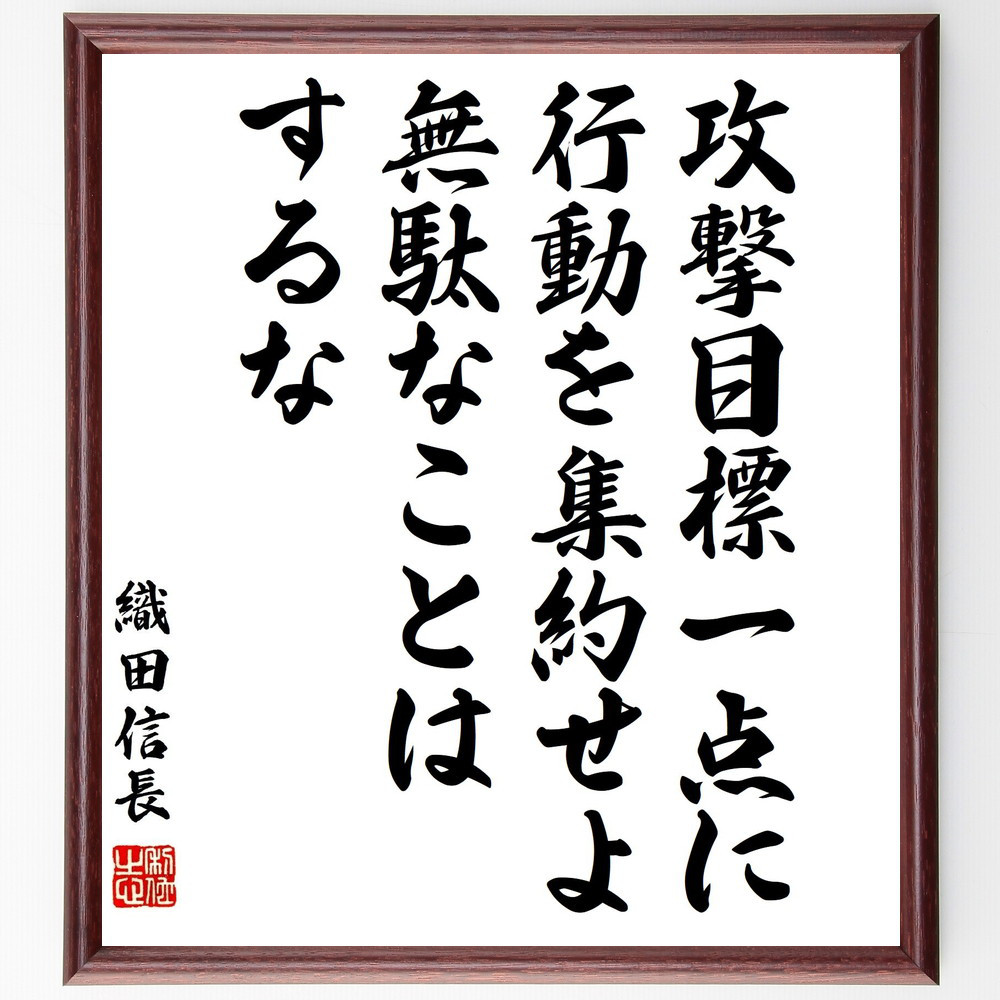 攻撃目標一点に
行動を集約せよ
無駄なことは
するな
織田信長